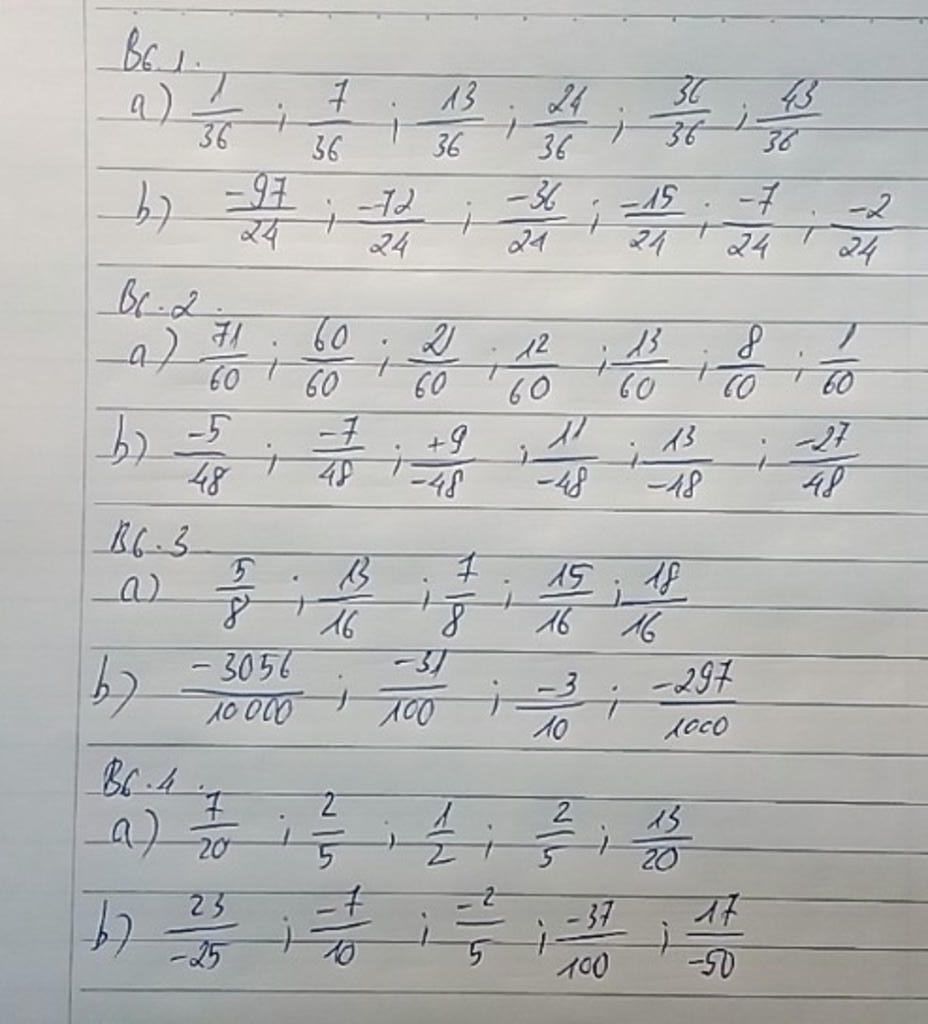 B6.1.
a) 1/36 ; 7/36 ; 13/36 ; 24/36 ; 36/36 ; 43/36
b) -97/24 ; -72/24 ; -36/24 ; -15/24 ; -7/24 ; -2/24
B6.2.
a) 71/60 ; 60/60 ; 21/60 ; 12/60 ; 13/60 ; 8/60 ; 1/60
b) -5/48 ; -7/48 ; +9/-48 ; 11/-48 ; 13/-48 ; -27/48
B6.3
a) 5/8 ; 13/16 ; 7/8 ; 15/16 ; 18/16
b) -3056/10000 ; -31/100 ; -3/10 ; -297/1000
B6.4.
a) 7/20 ; 2/5 ; 1/2 ; 2/5 ; 13/20
b) 23/-25 ; -7/10 ; -2/5 ; -37/100 ; 17/-50